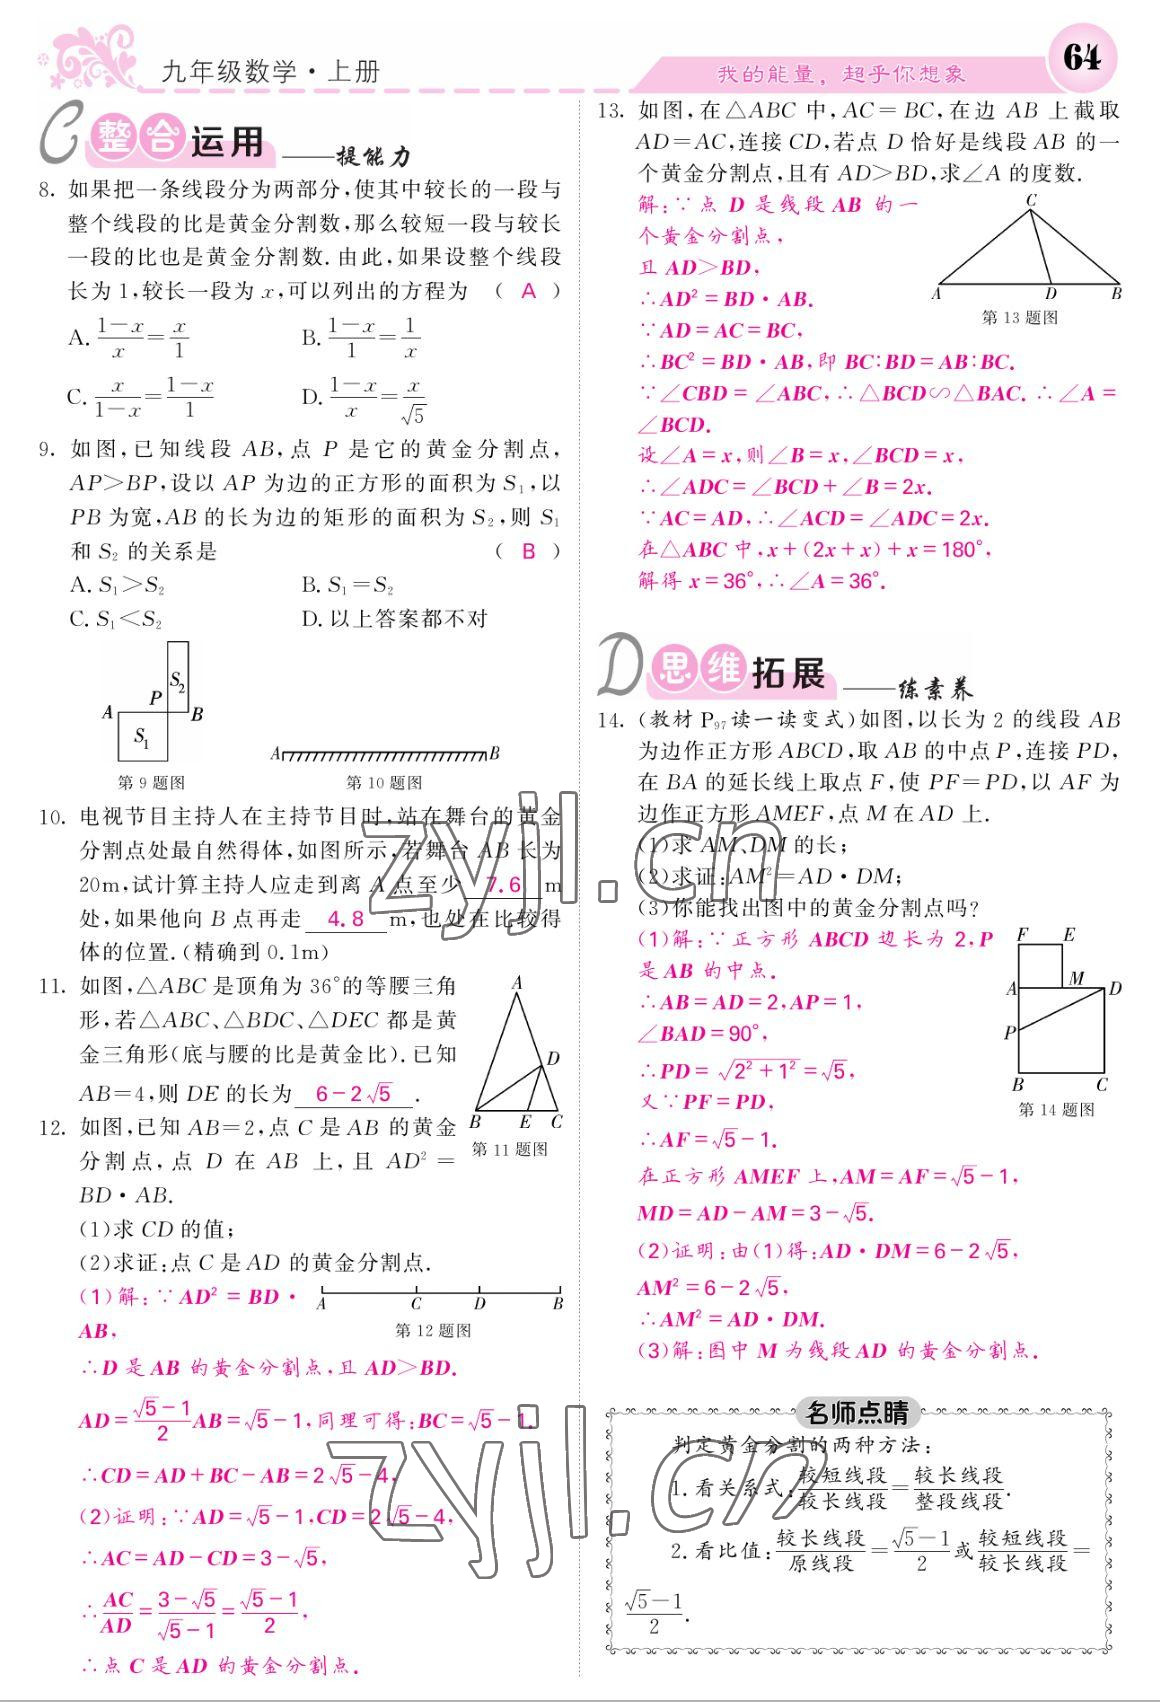 九年级数学·上册
我的能量，超乎你想象
64
C 整合运用 ——提能力
8. 如果把一条线段分为两部分,使其中较长的一段与
整个线段的比是黄金分割数,那么较短一段与较长
一段的比也是黄金分割数.由此,如果设整个线段
长为1,较长一段为 x,可以列出的方程为 ( A )
A. (1-x)/x = x/1 B. (1-x)/1 = 1/x
C. x/(1-x) = (1-x)/1 D. (1-x)/x = x/√5
9. 如图,已知线段 AB,点 P 是它的黄金分割点,
AP>BP,设以 AP 为边的正方形的面积为 S₁,以
PB 为宽,AB 的长为边的矩形的面积为 S₂,则 S₁
和 S₂ 的关系是 ( B )
A. S₁>S₂ B. S₁=S₂
C. S₁<S₂ D. 以上答案都不对
S₂
P
A B
S₁
A B
第 9 题图 第 10 题图
10. 电视节目主持人在主持节目时,站在舞台的黄金
分割点处最自然得体,如图所示,若舞台 AB 长为
20m,试计算主持人应走到离 A 点至少 7.6 m
处,如果他向 B 点再走 4.8 m,也处在比较得
体的位置.(精确到 0.1m)
11. 如图,△ABC 是顶角为 36°的等腰三角
形,若△ABC、△BDC、△DEC 都是黄
金三角形(底与腰的比是黄金比).已知
AB=4,则 DE 的长为 6-2√5 .
A
D
B E C
第 11 题图
12. 如图,已知 AB=2,点 C 是 AB 的黄金
分割点,点 D 在 AB 上,且 AD²=
BD·AB.
(1)求 CD 的值;
(2)求证:点 C 是 AD 的黄金分割点.
(1)解:∵AD²=BD·
AB,
A C D B
第 12 题图
∴D 是 AB 的黄金分割点,且 AD>BD.
AD=(√5-1)/2 AB=√5-1,同理可得:BC=√5-1.
∴CD=AD+BC-AB=2√5-4,
(2)证明:∵AD=√5-1,CD=2√5-4,
∴AC=AD-CD=3-√5,
∴AC/AD=(3-√5)/(√5-1)=(√5-1)/2,
∴点 C 是 AD 的黄金分割点.
13. 如图,在△ABC 中,AC=BC,在边 AB 上截取
AD=AC,连接 CD,若点 D 恰好是线段 AB 的一
个黄金分割点,且有 AD>BD,求∠A 的度数.
解:∵点 D 是线段 AB 的一
个黄金分割点,
且 AD>BD,
∴AD²=BD·AB.
∵AD=AC=BC,
C
A D B
第 13 题图
∴BC²=BD·AB,即 BC:BD=AB:BC.
∵∠CBD=∠ABC,∴△BCD∽△BAC.∴∠A=
∠BCD.
设∠A=x,则∠B=x,∠BCD=x,
∴∠ADC=∠BCD+∠B=2x.
∵AC=AD,∴∠ACD=∠ADC=2x.
在△ABC 中,x+(2x+x)+x=180°,
解得 x=36°,∴∠A=36°.
D 思维拓展 ——练素养
14. (教材 P₉₇读一读变式)如图,以长为 2 的线段 AB
为边作正方形 ABCD,取 AB 的中点 P,连接 PD,
在 BA 的延长线上取点 F,使 PF=PD,以 AF 为
边作正方形 AMEF,点 M 在 AD 上.
(1)求 AM、DM 的长;
(2)求证:AM²=AD·DM;
(3)你能找出图中的黄金分割点吗?
(1)解:∵正方形 ABCD 边长为 2,P
是 AB 的中点.
∴AB=AD=2,AP=1,
∠BAD=90°,
∴PD=√(2²+1²)=√5,
又∵PF=PD,
∴AF=√5-1.
F E
A M D
P
B C
第 14 题图
在正方形 AMEF 上,AM=AF=√5-1,
MD=AD-AM=3-√5.
(2)证明:由(1)得:AD·DM=6-2√5,
AM²=6-2√5,
∴AM²=AD·DM.
(3)解:图中 M 为线段AD 的黄金分割点.
名师点睛
判定黄金分割的两种方法:
1. 看关系式:较短线段/较长线段=较长线段/整段线段.
2. 看比值:较长线段/原线段=(√5-1)/2 或 较短线段/较长线段=
(√5-1)/2.
zyjl.cn
zyjl.cn